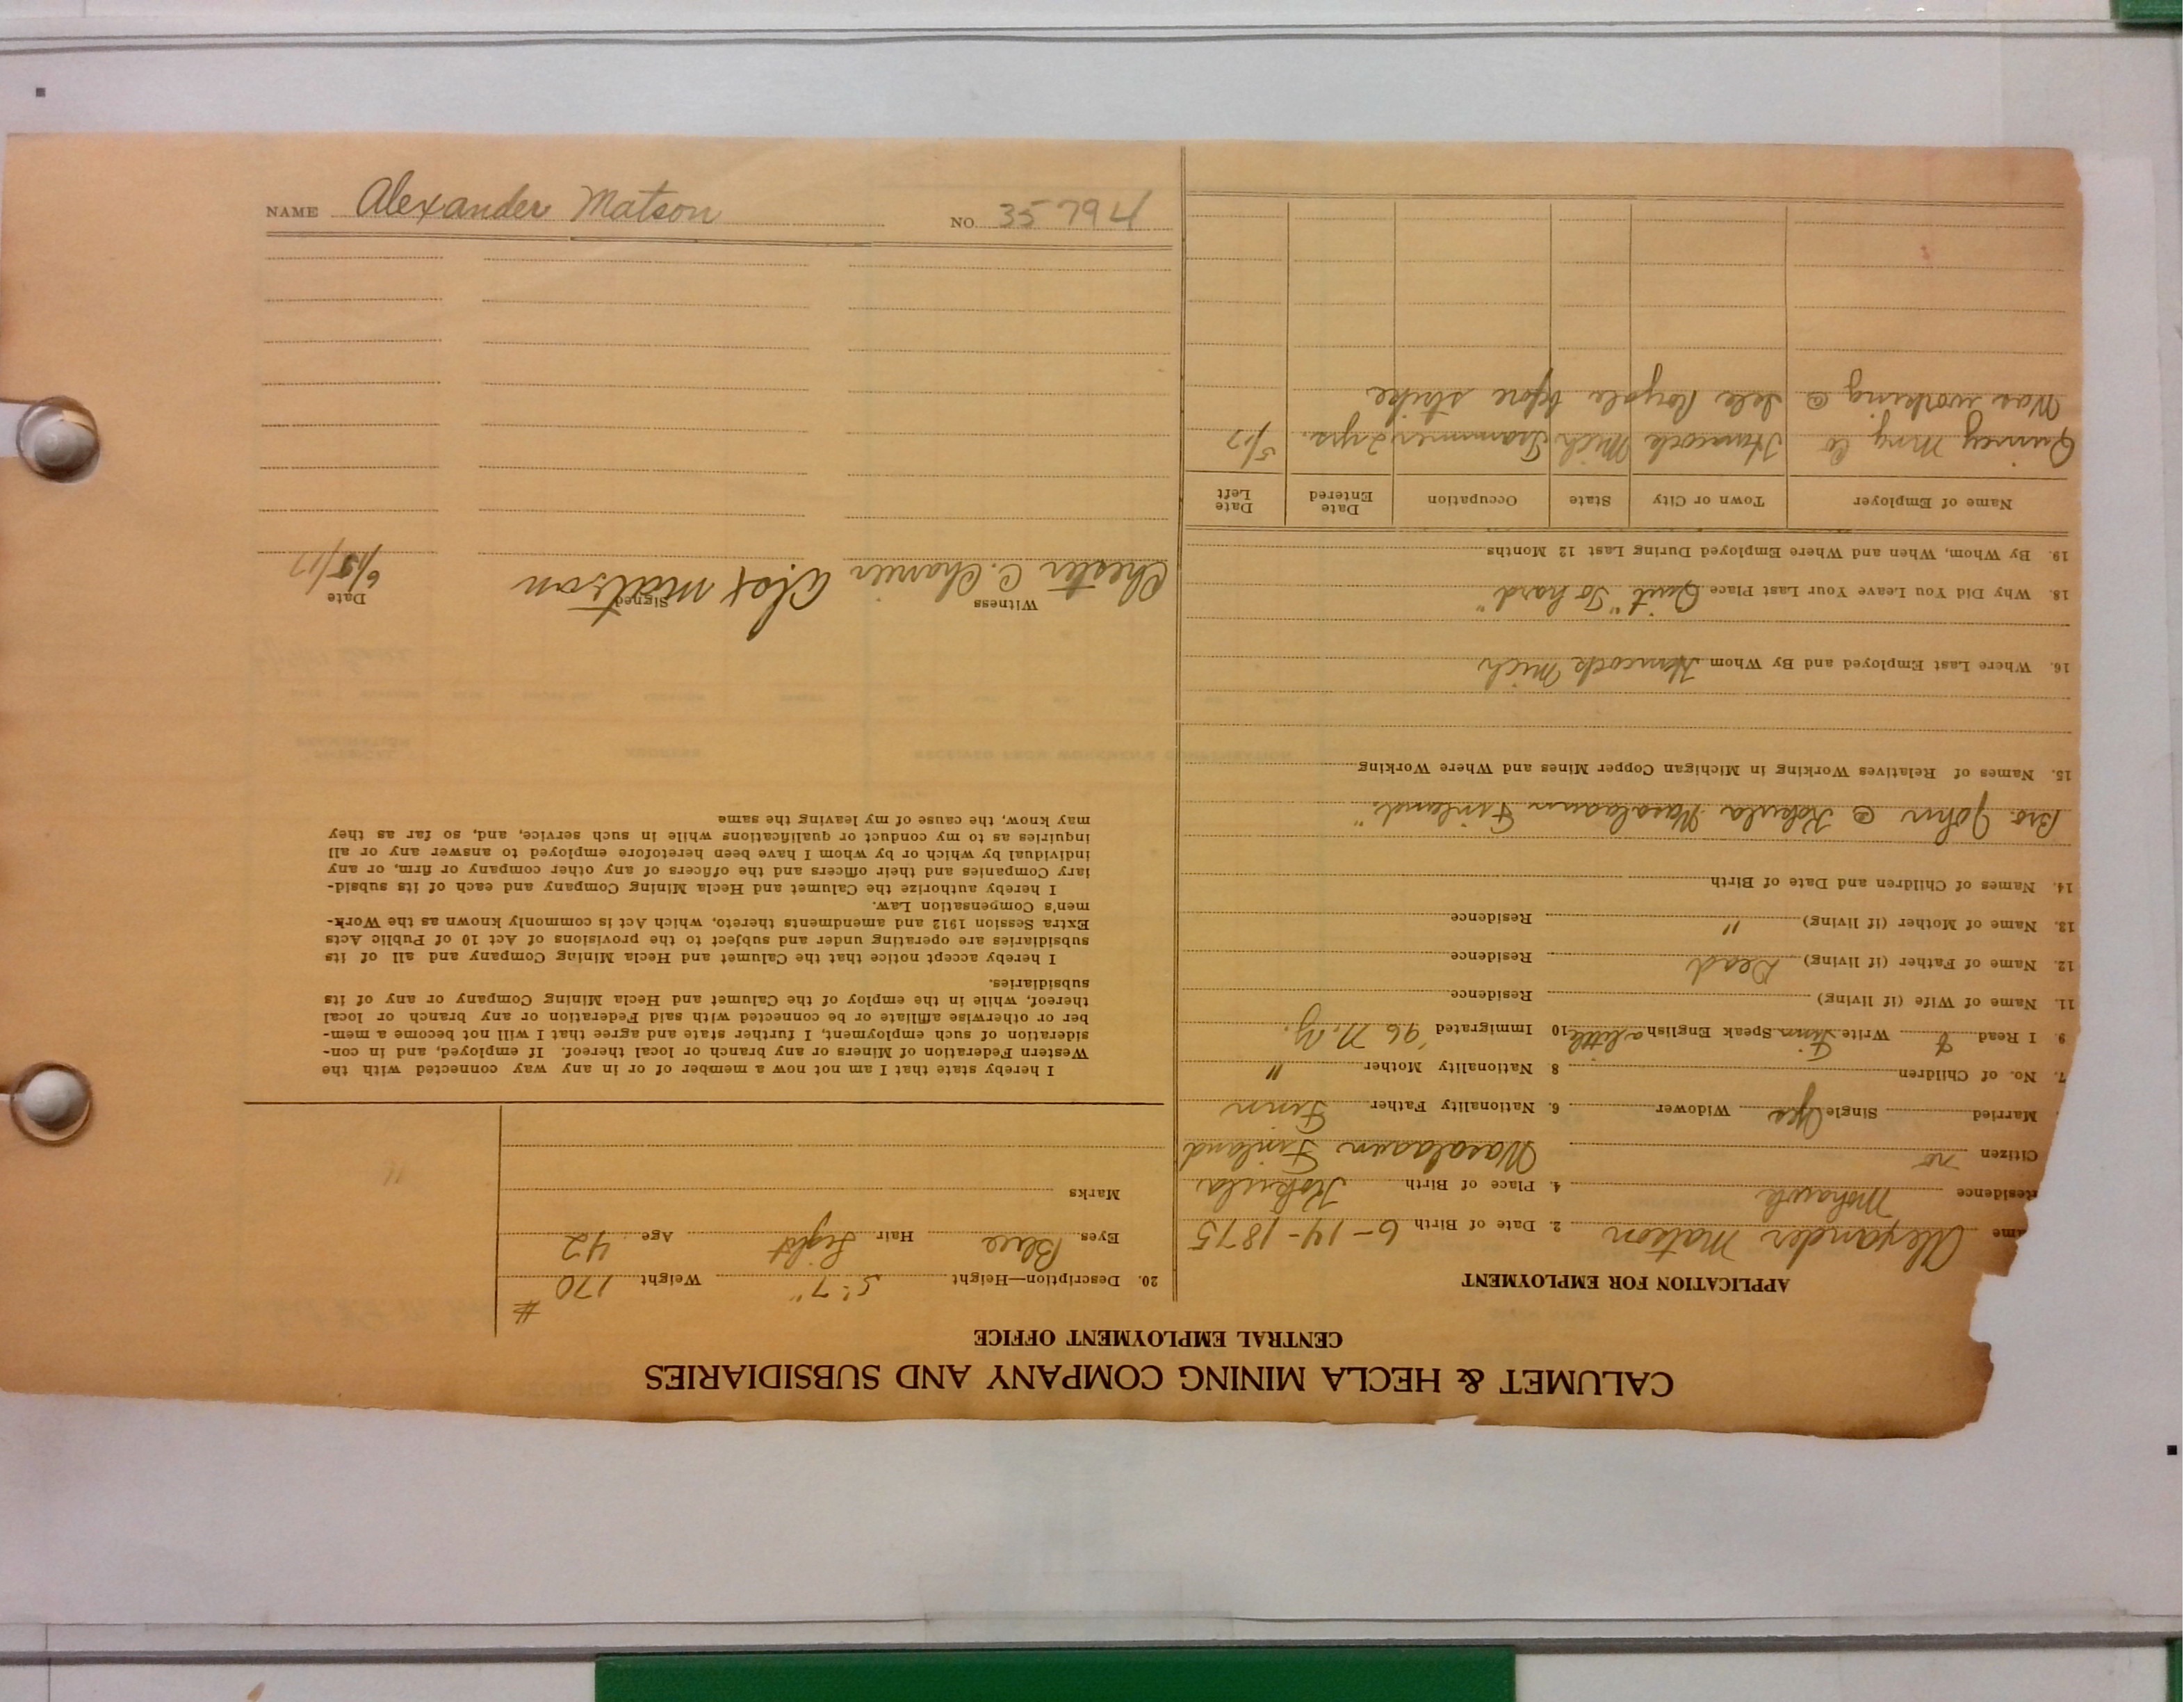 CALUMET & HECLA MINING COMPANY AND SUBSIDIARIES
CENTRAL EMPLOYMENT OFFICE
APPLICATION FOR EMPLOYMENT
ame Alexander Matson 2. Date of Birth 6-14-1875
Residence Mohawk 4. Place of Birth Kokvila
Citizen no Waasalaan Finland
Married Single Yes Widower 6. Nationality Father Finn
7. No. of Children 8. Nationality Mother "
9. I Read & Write Finn Speak English a little 10 Immigrated '96 N.Y.
11. Name of Wife (if living) Residence
12. Name of Father (if living) Dead Residence
13. Name of Mother (if living) " Residence
14. Names of Children and Date of Birth
Bro. John @ Kokvila Waasalaann Finland"
15. Names of Relatives Working in Michigan Copper Mines and Where Working
16. Where Last Employed and By Whom Hancock Mich
18. Why Did You Leave Your Last Place Quit "To hard"
19. By Whom, When and Where Employed During Last 12 Months
Name of Employer Town or City State Occupation Date Entered Date Left
Quincy Mng Co Hancock Mich Trammer 2 yrs. 5/17
Was working @ Isle Royale before strike
20. Description—Height 5' 7" Weight 170 #
Eyes Blue Hair Light Age 42
Marks
I hereby state that I am not now a member of or in any way connected with the
Western Federation of Miners or any branch or local thereof. If employed, and in con-
sideration of such employment, I further state and agree that I will not become a mem-
ber or otherwise affiliate or be connected with said Federation or any branch or local
thereof, while in the employ of the Calumet and Hecla Mining Company or any of its
subsidiaries.
I hereby accept notice that the Calumet and Hecla Mining Company and all of its
subsidiaries are operating under and subject to the provisions of Act 10 of Public Acts
Extra Session 1912 and amendments thereto, which Act is commonly known as the Work-
men's Compensation Law.
I hereby authorize the Calumet and Hecla Mining Company and each of its subsid-
iary Companies and their officers and the officers of any other company or firm, or any
individual by which or by whom I have been heretofore employed to answer any or all
inquiries as to my conduct or qualifications while in such service, and, so far as they
may know, the cause of my leaving the same
Witness Signed Date
Chester C. Charrier Alex Matson 6/15/17
NAME Alexander Matson NO. 35794